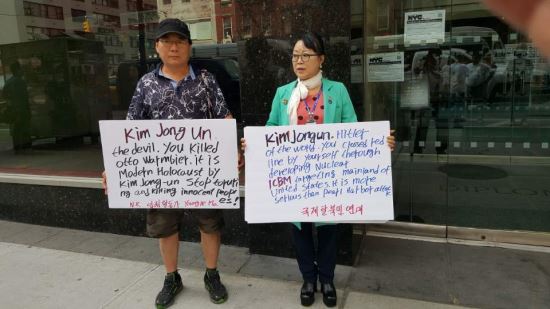 Kim Jong Un
the devil. You killed
otto warmbier. it is
Modern Holocaust by
Kim Jong-un Stop
ing and killing innocent
N.K.
Kim Jong un. Hitler
of the world. You chased red
line by yourself through
developing Nuclear
ICBM targeting mainland of
United States. It is more
serious than Pearl Harbor attack
국제탈북민연대
NYC
NYC